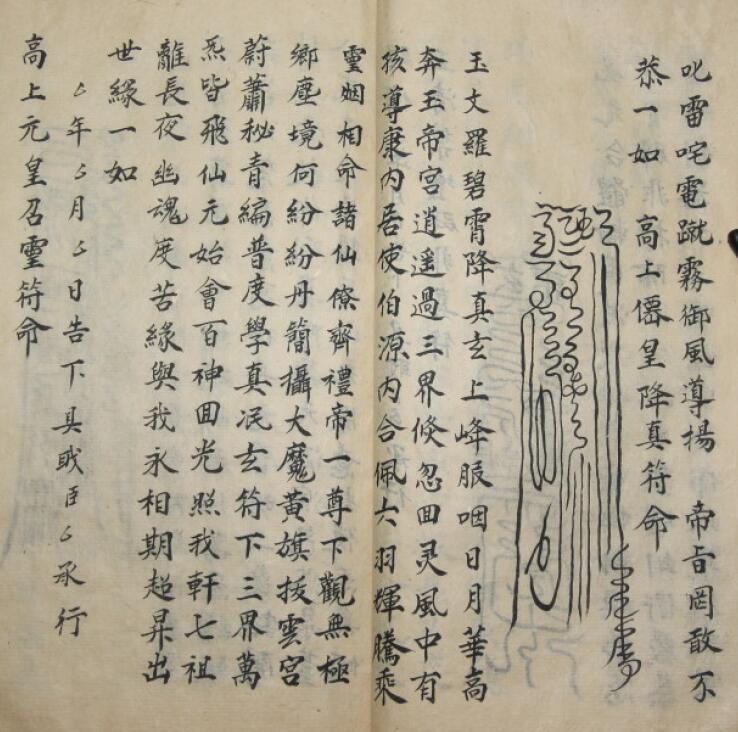 叱雷咤電蹴霧御風導揚　帝旨罔敢不
恭一如　高上僊皇降真符命
玉文羅碧霄降真玄上峰服咽日月華高
奔玉帝宮逍遥過三界倏忽回灵風中有
孩導康内居使伯源内合佩六羽輝騰乘
靈姻相命諸仙僚齊禮帝一尊下觀無極
鄉塵境何紛紛丹簡攝大魔黃旗拔雲宮
蔚蕭秘青編普度學真氓玄符下三界萬
炁皆飛仙元始會百神回光照我軒七祖
離長夜幽魂度苦緣與我永相期超昇出
世緣一如
厶年厶月厶日告下具職臣厶承行
高上元皇召靈符命